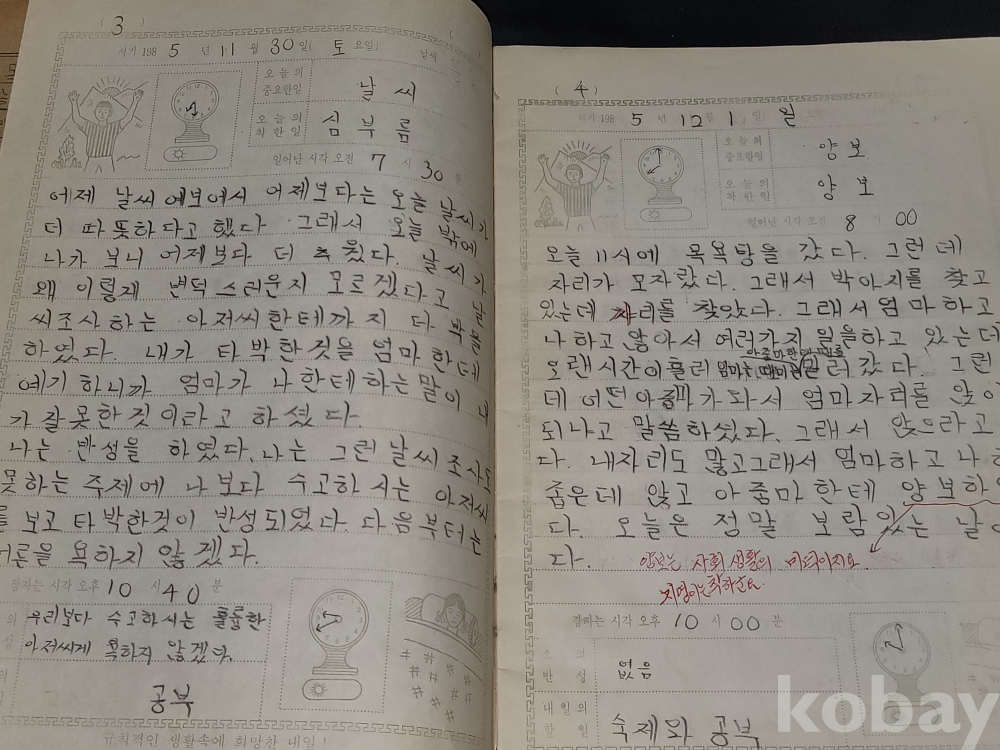 ( 3 )
서기 198 5 년 11 월 30 일( 토 요일) 날씨
오늘의 중요한일 날씨
오늘의 착한일 심부름
일어난 시각 오전 7 시 30 분
어제 날씨 예보에서 어제보다는 오늘 날씨가
더 따뜻하다고 했다 그래서 오늘 밖에
나가 보니 어제보다 더 추웠다. 날씨가
왜 이렇게 변덕스러운지 모르겠다고 날
씨조사하는 아저씨한테까지 다
하였다. 내가 타박한것을 엄마한테
얘기하니까 엄마가 나한테하는 말이 내
가 잘못한것이라고 하셨다.
나는 반성을 하였다. 나는 그런 날씨조사도
못하는 주제에 나보다 수고하시는 아저씨
를 보고 타박한것이 반성되었다. 다음부터는
어른을 욕하지 않겠다.
잠자는 시각 오후 10 시 40 분
우리보다 수고하시는 훌륭한
아저씨께 욕하지 않겠다.
공부
규칙적인 생활속에 희망찬 내일!
( 4 )
서기 198 5 년 12 월 1 일 월
오늘의 중요한일 양보
오늘의 착한일 양보
일어난 시각 오전 8 시 00
오늘 11시에 목욕탕을 갔다. 그런데
자리가 모자랐다. 그래서 박아지를 찾고
있는데 자리를 찾았다. 그래서 엄마하고
나하고 앉아서 여러가지 일을하고 있는데
오랜시간이흘러 아줌마한테 때를 밀러 갔다. 그런
데 어떤아줌마가 와서 엄마자리를 앉아
되냐고 말씀하셨다. 그래서 앉으라고
다. 내자리도 많고그래서 엄마하고 나하
좁은데 앉고 아줌마한테 양보하였
다. 오늘은 정말 보람있는 날이
다.
양보는 사회생활의 미덕이지요
지영이는 착하군요
잠자는 시각 오후 10 시 00 분
오늘의 반성 없음
내일의 할일 숙제와 공부
kobay